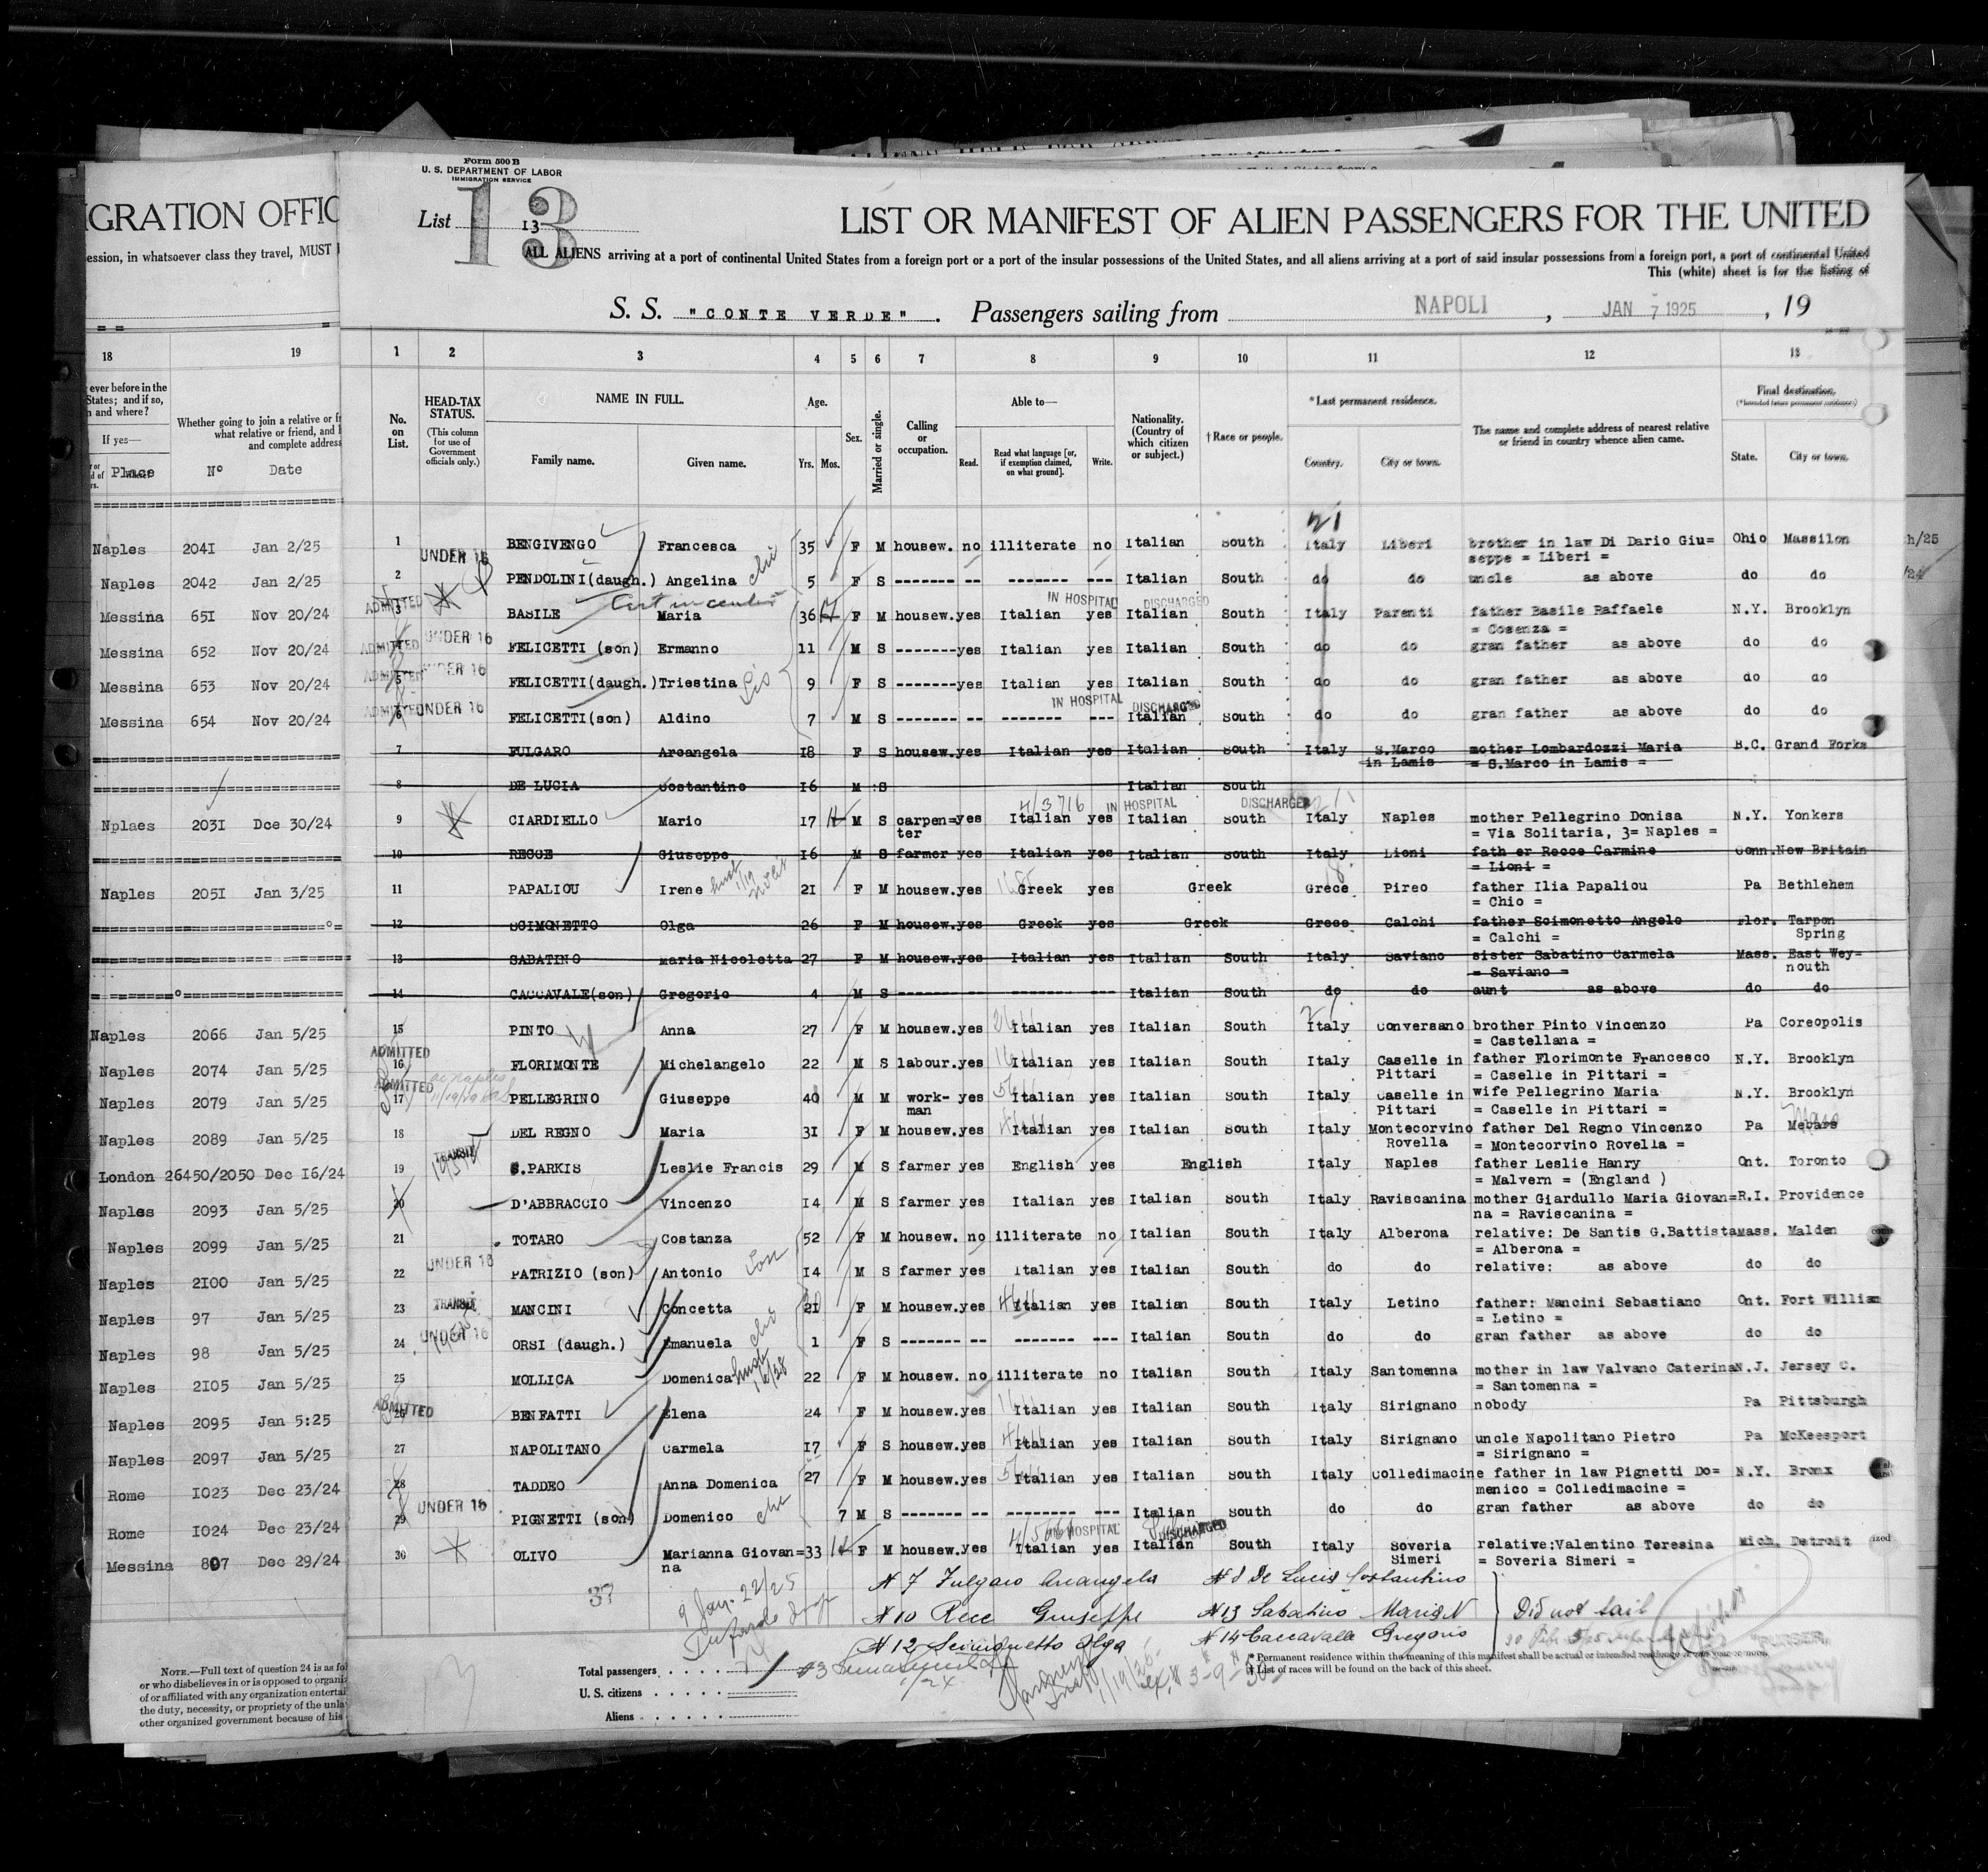 Form 500 B
U. S. DEPARTMENT OF LABOR
IMMIGRATION SERVICE
List 13
13
LIST OR MANIFEST OF ALIEN PASSENGERS FOR THE UNITED
ALL ALIENS arriving at a port of continental United States from a foreign port or a port of the insular possessions of the United States, and all aliens arriving at a port of said insular possessions from a foreign port, a port of continental United
This (white) sheet is for the listing of
S. S. "CONTE VERDE". Passengers sailing from NAPOLI, JAN 7 1925, 19
IGRATION OFFIC
ession, in whatsoever class they travel, MUST
18 19
ever before in the
States; and if so,
n and where?
If yes—
Place
Whether going to join a relative or fr
what relative or friend, and
and complete address
Nº Date
1 2 3 4 5 6 7 8 9 10 11 12 13
No. on List.
HEAD-TAX STATUS.
(This column for use of Government officials only.)
NAME IN FULL.
Family name. Given name.
Age.
Yrs. Mos.
Sex.
Married or single.
Calling or occupation.
Able to—
Read. Read what language [or, if exemption claimed, on what ground]. Write.
Nationality. (Country of which citizen or subject.)
†Race or people.
*Last permanent residence.
Country. City or town.
The name and complete address of nearest relative or friend in country whence alien came.
Final destination.
(*Intended future permanent residence)
State. City or town.
Naples 2041 Jan 2/25
1 UNDER 16 BENGIVENGO Francesca 35 F M housew. no illiterate no Italian South Italy Liberi brother in law Di Dario Giu= Ohio Massilon
seppe = Liberi =
Naples 2042 Jan 2/25
2 PENDOLINI(daugh.) Angelina 5 F S ------- -- ------- --- Italian South do do uncle as above do do
IN HOSPITAL DISCHARGED
Messina 651 Nov 20/24
ADMITTED 3 BASILE Maria 36 F M housew.yes Italian yes Italian South Italy Parenti father Basile Raffaele N.Y. Brooklyn
= Cosenza =
Messina 652 Nov 20/24
ADMITTED 4 UNDER 16 FELICETTI (son) Ermanno 11 M S -------yes Italian yes Italian South do do gran father as above do do
Messina 653 Nov 20/24
ADMITTED 5 UNDER 16 FELICETTI(daugh.)Triestina 9 F S -------yes Italian yes Italian South do do gran father as above do do
IN HOSPITAL DISCHARGED
Messina 654 Nov 20/24
ADMITTED 6 UNDER 16 FELICETTI(son) Aldino 7 M S ------- -- ------- --- Italian South do do gran father as above do do
7 FULGARO Arcangela 18 F S housew.yes Italian yes Italian South Italy S.Marco mother Lombardozzi Maria B.C. Grand Forks
in Lamis = S.Marco in Lamis =
8 DE LUCIA Costantino 16 M S Italian South
IN HOSPITAL DISCHARGED
Nplaes 2031 Dce 30/24
9 CIARDIELLO Mario 17 M S carpen=yes Italian yes Italian South Italy Naples mother Pellegrino Donisa N.Y. Yonkers
ter = Via Solitaria, 3= Naples =
10 RECCE Giuseppe 16 M S farmer yes Italian yes Italian South Italy Lioni fath er Recce Carmine Conn.New Britain
= Lioni =
Naples 2051 Jan 3/25
11 PAPALIOU Irene 21 F M housew.yes Greek yes Greek Grece Pireo father Ilia Papaliou Pa Bethlehem
= Chio =
12 SCIMONETTO Olga 26 F M housew.yes Greek yes Greek Grece Calchi father Scimonetto Angelo Flor. Tarpon
= Calchi = Spring
13 SABATINO Maria Nicoletta 27 F M housew.yes Italian yes Italian South Italy Saviano sister Sabatino Carmela Mass. East Wey=
= Saviano = mouth
14 CACCAVALE(son) Gregorio 4 M S Italian South do do aunt as above do do
Naples 2066 Jan 5/25
15 PINTO Anna 27 F M housew.yes Italian yes Italian South Italy Conversano brother Pinto Vincenzo Pa Coreopolis
= Castellana =
Naples 2074 Jan 5/25
ADMITTED 16 FLORIMONTE Michelangelo 22 M S labour.yes Italian yes Italian South Italy Caselle in father Florimonte Francesco N.Y. Brooklyn
Pittari = Caselle in Pittari =
Naples 2079 Jan 5/25
ADMITTED 17 PELLEGRINO Giuseppe 40 M M work- yes Italian yes Italian South Italy Caselle in wife Pellegrino Maria N.Y. Brooklyn
man Pittari = Caselle in Pittari =
Naples 2089 Jan 5/25
18 DEL REGNO Maria 31 F M housew.yes Italian yes Italian South Italy Montecorvino father Del Regno Vincenzo Pa
Rovella = Montecorvino Rovella =
London 26450/2050 Dec 16/24
19 TRANSIT S.PARKIS Leslie Francis 29 M S farmer yes English yes English Italy Naples father Leslie Hanry Ont. Toronto
= Malvern = (England )
Naples 2093 Jan 5/25
20 D'ABBRACCIO Vincenzo 14 M S farmer yes Italian yes Italian South Italy Raviscanina mother Giardullo Maria Giovan= R.I. Providence
na = Raviscanina =
Naples 2099 Jan 5/25
21 TOTARO Costanza 52 F M housew. no illiterate no Italian South Italy Alberona relative: De Santis G.Battista Mass. Malden
= Alberona =
Naples 2100 Jan 5/25
22 UNDER 16 PATRIZIO (son) Antonio 14 M S farmer yes Italian yes Italian South do do relative: as above do do
Naples 97 Jan 5/25
23 TRANSIT MANCINI Concetta 21 F M housew.yes Italian yes Italian South Italy Letino father: Mancini Sebastiano Ont. Fort William
= Letino =
Naples 98 Jan 5/25
24 UNDER 16 ORSI (daugh.) Emanuela 1 F S ------- -- ------- --- Italian South do do gran father as above do do
Naples 2105 Jan 5/25
25 MOLLICA Domenica 22 F M housew. no illiterate no Italian South Italy Santomenna mother in law Valvano Caterina N.J. Jersey C.
= Santomenna =
Naples 2095 Jan 5:25
ADMITTED 26 BENFATTI Elena 24 F M housew.yes Italian yes Italian South Italy Sirignano nobody Pa Pittsburgh
Naples 2097 Jan 5/25
27 NAPOLITANO Carmela 17 F S housew.yes Italian yes Italian South Italy Sirignano uncle Napolitano Pietro Pa McKeesport
= Sirignano =
Rome 1023 Dec 23/24
28 TADDEO Anna Domenica 27 F M housew.yes Italian yes Italian South Italy Colledimacine father in law Pignetti Do= N.Y. Bronx
menico = Colledimacine =
Rome 1024 Dec 23/24
29 UNDER 16 PIGNETTI (son) Domenico 7 M S ------- -- -------- --- Italian South do do gran father as above do do
IN HOSPITAL DISCHARGED
Messina 807 Dec 29/24
30 OLIVO Marianna Giovan= 33 F M housew.yes Italian yes Italian South Italy Soveria relative:Valentino Teresina Mich. Detroit
na Simeri = Soveria Simeri =
37
N 7 Fulgaro Arcangela N 8 De Lucia Costantino
N 10 Recce Giuseppe N 13 Sabatino Maria N Did not sail
N 12 Scimonetto Olga N 14 Caccavalle Gregorio
PURSER
Total passengers
U. S. citizens
Aliens
* Permanent residence within the meaning of this manifest shall be actual or intended residence of one year or more.
† List of races will be found on the back of this sheet.
NOTE.—Full text of question 24 is as fol
or who disbelieves in or is opposed to organi
of or affiliated with any organization entertai
the duty, necessity, or propriety of the unla
other organized government because of his